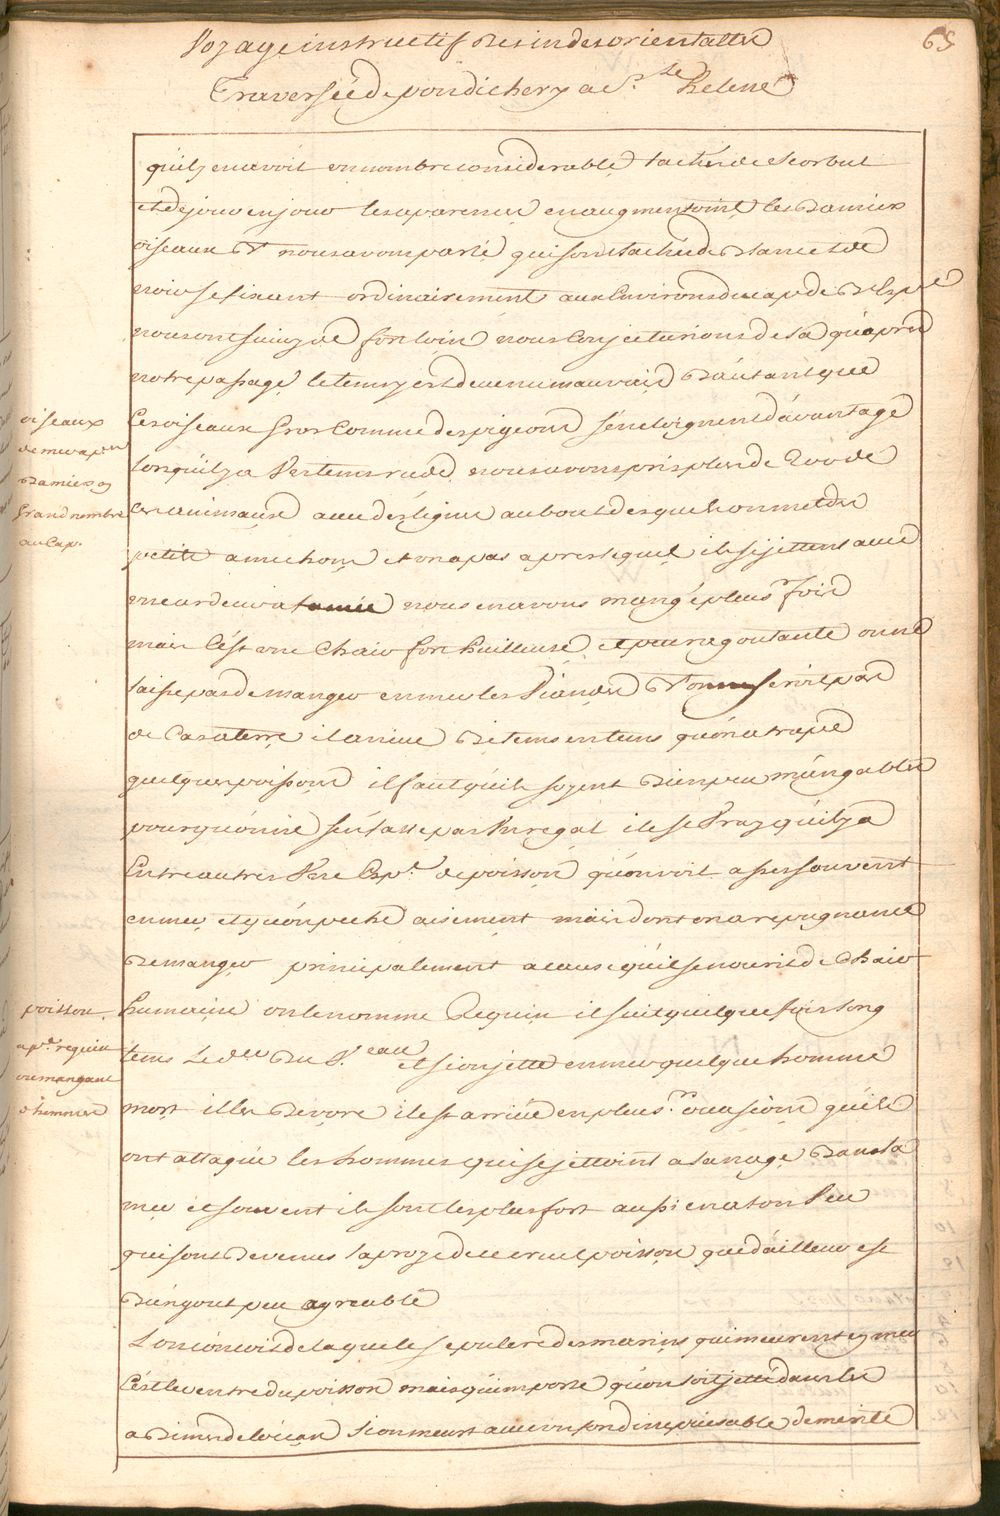 Voyage instructif Des indes orientalles
65
Traversée de pondichery a S.te helene
qu'il y en avoit en nombre considerable taché de scorbut
et de jour en jour les aparences en augmentoint les Damiers
oiseaux Dt nous avons parlé qui sont tachés de blanc et de
noir se tienent ordinairement aux Environs du cap de B. Esp.ce
nous ont suivy de fort loin nous Conjecturions de la qu'aprés
notre passage le tems y est devenu mauvais D'autant que
Ces oiseaux gros Comme des pigeons s'eneloignent d'avantage
lorsquil y a Des tems rude nous avons pris plus de 200 de
Ces animaux avec des lignes au bout desquels on met de
petits amechons et on apas apres lequel ils se jettent avec
une ardeur nous en avons mangé plus.rs fois
mais C'est une Chair fort huilleuse et peu ragoutante on ne
laisse pas de manger en mer les Viandes Dt on ne se servit pas
de Cas a terre il arrive De tems en tems qu'on atrape
quelques poissons il faut qu'ils soyent Bien peu mangables
pour qu'on ne s'en fasse pas Un regal il est Vray qu'il y a
Entre autres Une Esp.ce de poisson qu'on voit assez souvent
en mer et qu'on peche aisement mais dont on a repugnance
De manger principalement a cause qu'il se nourit de Chair
humaine on le nomme Requin il suit quelque fois long
tems Le der.e Du V.eau et si on jette en mer quelque homme
mort il les Devore il est arrivé en plus.rs ocasions qu'ils
ont attaqué les hommes qui se jettoint a la nage Dans la
mer et souvent ils sont les plus fort aussi en a t on Veu
qui sont Devenus la proye de ce cruel poisson qui d'ailleurs est
D'un gout peu agreable
L'on Conçoit de la quel est le sepulcre des marins qui meurent en mer
C'est le ventre du poisson mais qu'importe qu'on soit jetté dans les
abimes de l'ocean si on meurt avec un fond inepuisable de merite
oiseaux
de mer apellés
Damiers en
Grand nombre
au Cap.
poisson
apellé requin
ou mangeur
d'hommes